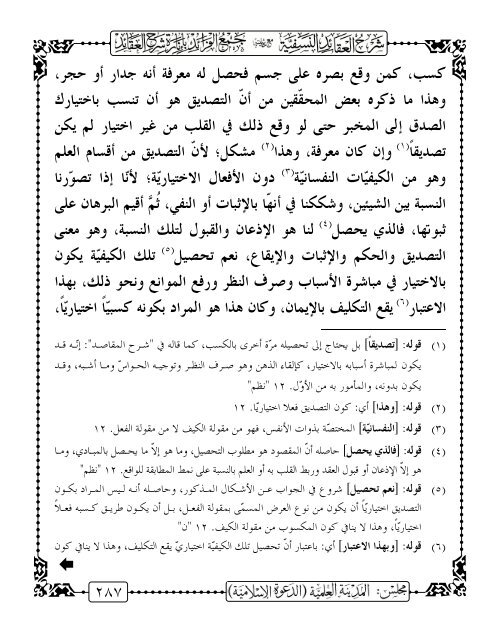 شرح العقائد النسفية مع جمع الفرائد بإنارة شرح العقائد
كسب، كمن وقع بصره على جسم فحصل له معرفة أنه جدار أو حجر،
وهذا ما ذكره بعض المحقّقين من أنّ التصديق هو أن تنسب باختيارك
الصدق إلى المخبر حتى لو وقع ذلك في القلب من غير اختيار لم يكن
تصديقاً(١) وإن كان معرفة، وهذا(٢) مشكل؛ لأنّ التصديق من أقسام العلم
وهو من الكيفيّات النفسانيّة(٣) دون الأفعال الاختياريّة؛ لأنّا إذا تصوّرنا
النسبة بين الشيئين، وشككنا في أنهّا بالإثبات أو النفي، ثُمَّ أقيم البرهان على
ثبوتها، فالذي يحصل(٤) لنا هو الإذعان والقبول لتلك النسبة، وهو معنى
التصديق والحكم والإثبات والإيقاع، نعم تحصيل(٥) تلك الكيفيّة يكون
بالاختيار في مباشرة الأسباب وصرف النظر ورفع الموانع ونحو ذلك، بهذا
الاعتبار(٦) يقع التكليف بالإيمان، وكان هذا هو المراد بكونه كسبيّاً اختياريّاً،
(١) قوله: [تصديقاً] بل يحتاج إلى تحصيله مرّة أخرى بالكسب، كما قاله في "شرح المقاصد": إنّه قد
يكون لمباشرة أسبابه بالاختيار، كإلقاء الذهن وهو صرف النظر وتوجيه الحواسّ وما أشبه، وقد
يكون بدونه، والمأمور به من الأوّل. ١٢ "نظم"
(٢) قوله: [وهذا] أي: كون التصديق فعلا اختياريّا. ١٢
(٣) قوله: [النفسانيّة] المختصّة بذوات الأنفس، فهو من مقولة الكيف لا من مقولة الفعل. ١٢
(٤) قوله: [فالذي يحصل] حاصله أنّ المقصود هو مطلوب التحصيل، وما هو إلاّ ما يحصل بالمبادي، وما
هو إلاّ الإذعان أو قبول العقد وربط القلب به أو العلم بالنسبة على نمط المطابقة للواقع. ١٢ "نظم"
(٥) قوله: [نعم تحصيل] شروع في الجواب عن الأشكال المذكور، وحاصله أنه ليس المراد بكون
التصديق اختياريّاً أن يكون من نوع العرض المسمّى بمقولة الفعل، بل أن يكون طريق كسبه فعلاً
اختياريّاً، وهذا لا ينافي كون المكسوب من مقولة الكيف. ١٢ "ن"
(٦) قوله: [وبهذا الاعتبار] أي: باعتبار أنّ تحصيل تلك الكيفيّة اختياريّ يقع التكليف، وهذا لا ينافي كون
مجلس: المدينة العلمية (الدعوة الإسلامية)
٢٨٧